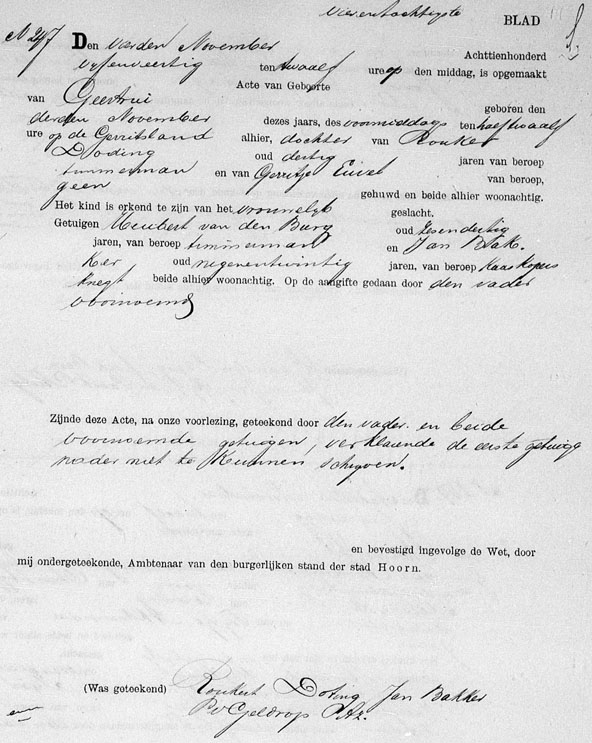 Vierentachtigste BLAD
N 247 Den vierden November Achttienhonderd
vyfenveertig ten twaalf ure op den middag, is opgemaakt
Acte van Geboorte
van Geertrui geboren den
derden November dezes jaars, des voormiddags ten half twaalf
ure op de Gerritsland alhier, dochter van Roukes
Doding oud dertig jaren van beroep
timmerman en van Gerritje van beroep,
geen gehuwd en beide alhier woonachtig.
Het kind is erkend te zijn van het vrouwelyk geslacht.
Getuigen Meubert van den Burg oud zesendertig
jaren, van beroep timmerman en Jan Bak-
ker oud negenentwintig jaren, van beroep Kaaskopers
knegt beide alhier woonachtig. Op de aangifte gedaan door den vader
voornoemd
Zijnde deze Acte, na onze voorlezing, geteekend door den vader en beide
voornoemde getuigen, verklarende de eerste getuige
nader niet te kunnen schryven.
en bevestigd ingevolge de Wet, door
mij ondergeteekende, Ambtenaar van den burgerlijken stand der stad Hoorn.
(Was geteekend) Roukert Doting Jan Bakker
P v Geldrop Az.